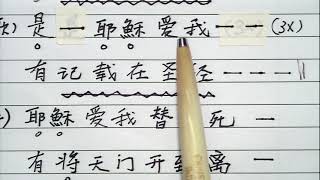 是一耶穌爱我一一(3X)
有记载在圣经一一一一
耶穌爱我替死一
有将天门开离一